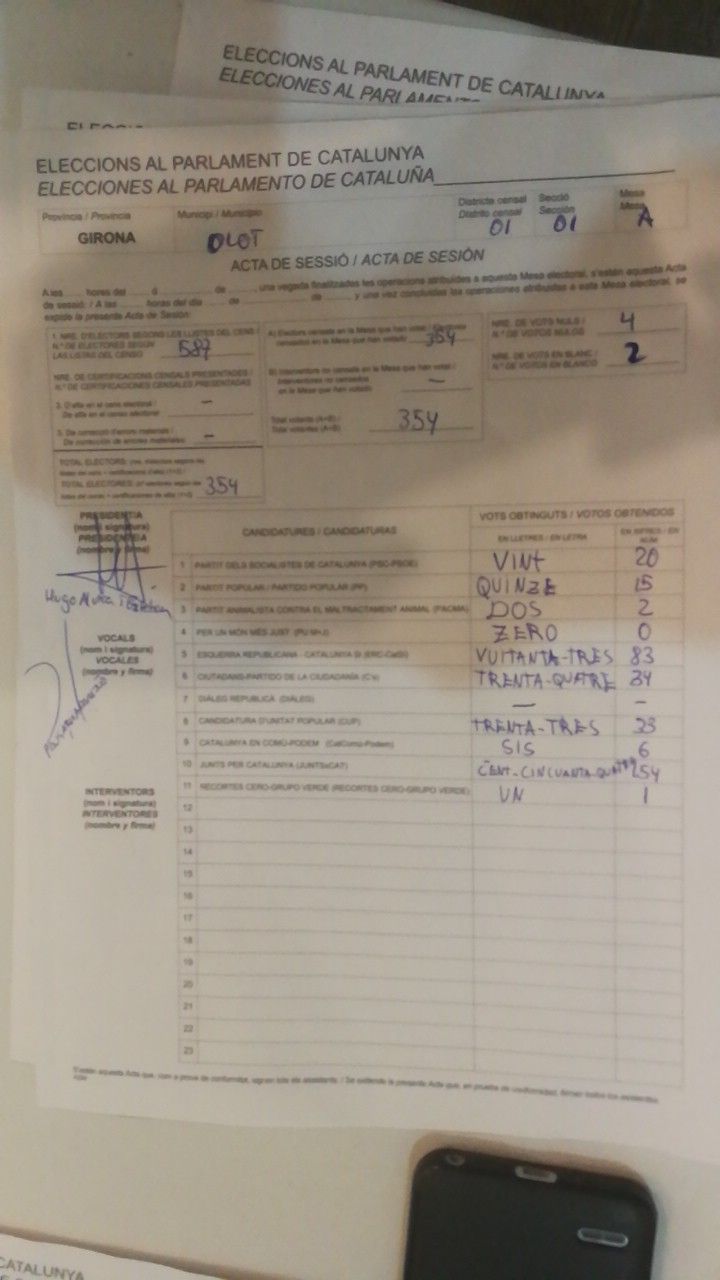 ELECCIONS AL PARLAMENT DE CATALUNYA
ELECCIONES AL PARLAMENTO
ELECCIONS AL PARLAMENT DE CATALUNYA
ELECCIONES AL PARLAMENTO DE CATALUÑA
Província / Provincia Municipi / Municipio Districte censal Secció Mesa
Distrito censal Sección Mesa
GIRONA OLOT 01 01 A
ACTA DE SESSIÓ / ACTA DE SESIÓN
A les hores del d de , una vegada finalitzades les operacions atribuïdes a aquesta Mesa electoral, s'estén aquesta Acta
de sessió: / A las horas del día de de y una vez concluidas las operaciones atribuidas a esta Mesa electoral, se
expide la presente Acta de Sesión:
1. NRE. D'ELECTORS SEGONS LES LLISTES DEL CENS /
N.º DE ELECTORES SEGÚN
LAS LISTAS DEL CENSO 587
NRE. DE CERTIFICACIONS CENSALS PRESENTADES /
N.º DE CERTIFICACIONES CENSALES PRESENTADAS
2. D'alta en el cens electoral /
De alta en el censo electoral –
3. De correcció d'errors materials /
De corrección de errores materiales –
TOTAL ELECTORS:
TOTAL ELECTORES: 354
A) Electors censats en la Mesa que han votat / Electores
censados en la Mesa que han votado 354
B) Interventors no censats en la Mesa que han votat /
Interventores no censados
en la Mesa que han votado –
Total votants (A+B) /
Total votantes (A+B) 354
NRE. DE VOTS NULS /
N.º DE VOTOS NULOS 4
NRE. DE VOTS EN BLANC /
N.º DE VOTOS EN BLANCO 2
PRESIDENTIA
(nom i signatura)
PRESIDENCIA
(nombre y firma)
VOCALS
(nom i signatura)
VOCALES
(nombre y firma)
INTERVENTORS
(nom i signatura)
INTERVENTORES
(nombre y firma)
CANDIDATURES / CANDIDATURAS VOTS OBTINGUTS / VOTOS OBTENIDOS
EN LLETRES / EN LETRA EN XIFRES / EN NÚM
1 PARTIT DELS SOCIALISTES DE CATALUNYA (PSC-PSOE) VINT 20
2 PARTIT POPULAR / PARTIDO POPULAR (PP) QUINZE 15
3 PARTIT ANIMALISTA CONTRA EL MALTRACTAMENT ANIMAL (PACMA) DOS 2
4 PER UN MÓN MÉS JUST (PUM+J) ZERO 0
5 ESQUERRA REPUBLICANA - CATALUNYA SÍ (ERC-CatSí) VUITANTA-TRES 83
6 CIUTADANS-PARTIDO DE LA CIUDADANÍA (C's) TRENTA-QUATRE 34
7 DIÀLEG REPUBLICÀ (DIÀLEG) – –
8 CANDIDATURA D'UNITAT POPULAR (CUP) TRENTA-TRES 33
9 CATALUNYA EN COMÚ-PODEM (CatComú-Podem) SIS 6
10 JUNTS PER CATALUNYA (JUNTSxCAT) CENT-CINCUANTA-QUATRE 154
11 RECORTES CERO-GRUPO VERDE (RECORTES CERO-GRUPO VERDE) UN 1
12
13
14
15
16
17
18
19
20
21
22
23
CATALUNYA